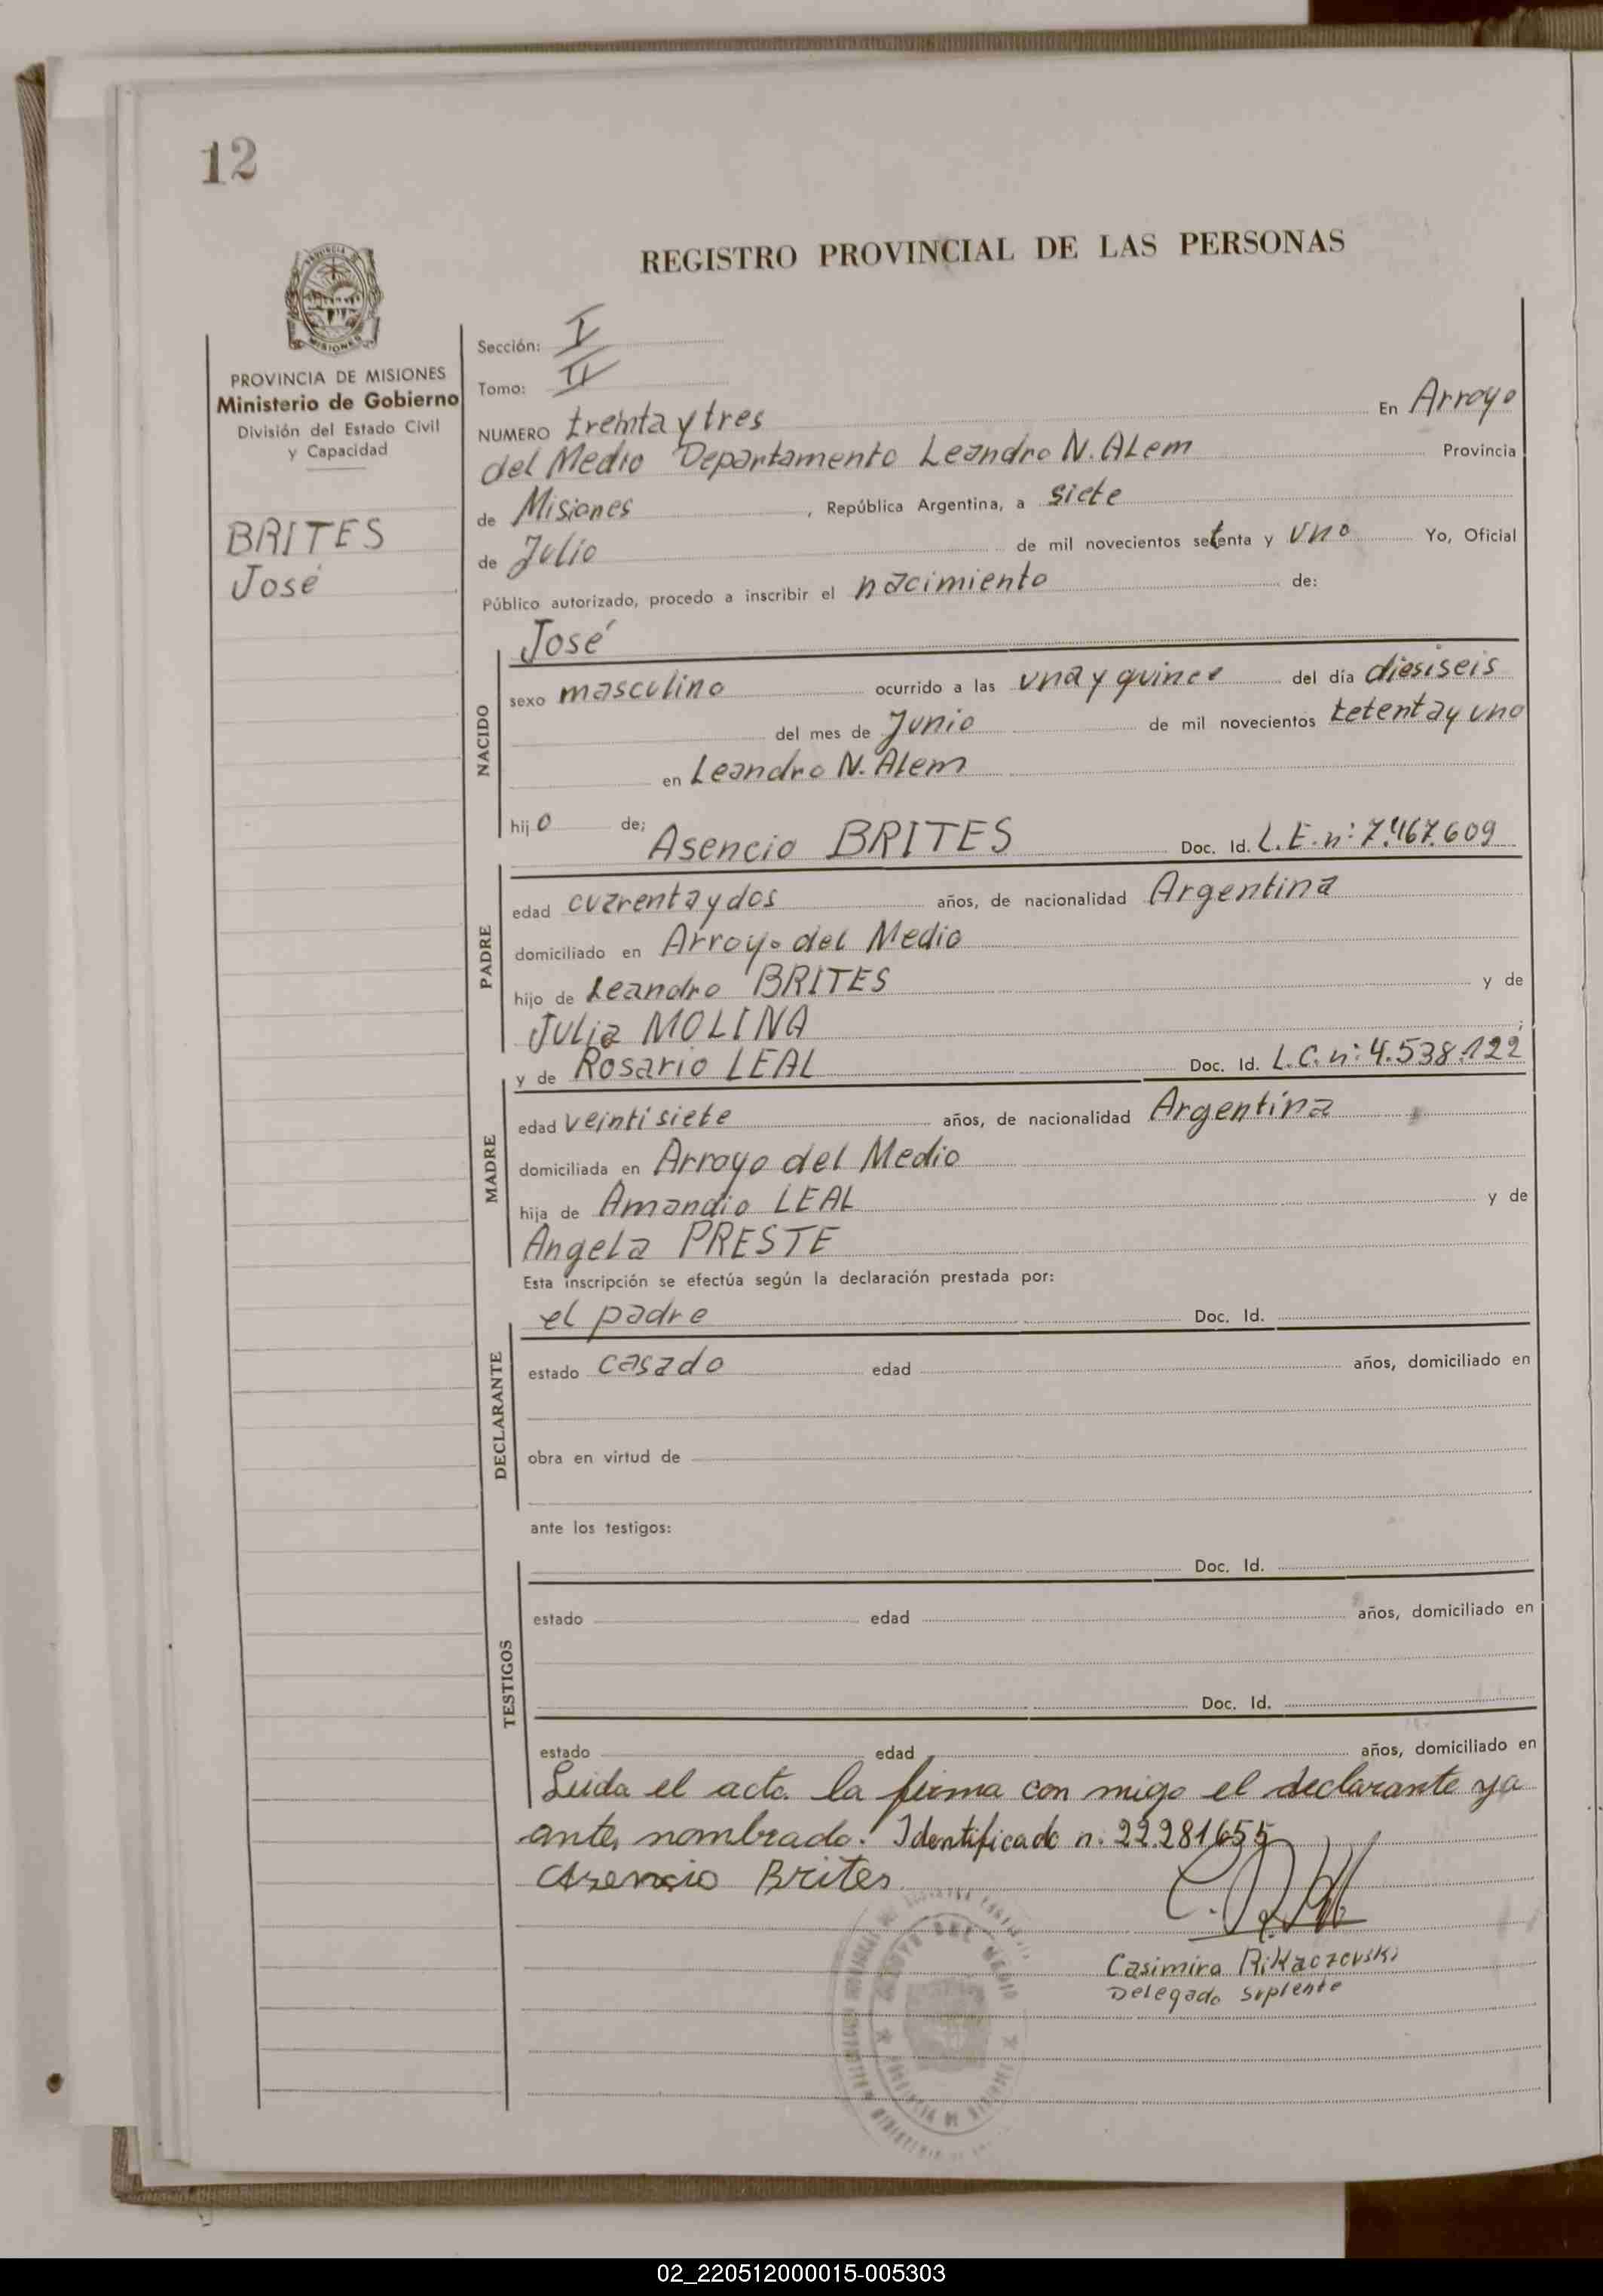 12
REGISTRO PROVINCIAL DE LAS PERSONAS
PROVINCIA DE MISIONES
Ministerio de Gobierno
División del Estado Civil
y Capacidad
BRITES
José
Sección: I
Tomo: II
NUMERO treinta y tres En Arroyo
del Medio Departamento Leandro N. ALem Provincia
de Misiones , República Argentina, a siete
de Julio de mil novecientos setenta y uno Yo, Oficial
Público autorizado, procedo a inscribir el nacimiento de:
José
NACIDO
sexo masculino ocurrido a las una y quince del día diesiseis
del mes de Junio de mil novecientos tetenta y uno
en Leandro N. ALem
hijo de; Asencio BRITES Doc. Id. L.E.nº 7.467.609
PADRE
edad cuarenta y dos años, de nacionalidad Argentina
domiciliado en Arroyo del Medio
hijo de Leandro BRITES y de
Julia MOLINA ;
y de Rosario LEAL Doc. Id. L.C.nº 4.538.122
MADRE
edad veintisiete años, de nacionalidad Argentina
domiciliada en Arroyo del Medio
hija de Amandio LEAL y de
Angela PRESTE
Esta inscripción se efectúa según la declaración prestada por:
el padre Doc. Id.
DECLARANTE
estado casado edad años, domiciliado en
obra en virtud de
ante los testigos:
Doc. Id.
TESTIGOS
estado edad años, domiciliado en
Doc. Id.
estado edad años, domiciliado en
Leida el acta la firma con migo el declarante ya
antes nombrado. Identificado n. 22.281655
Asencio Brites
Casimiro Rikaczevski
Delegado Suplente
02_220512000015-005303